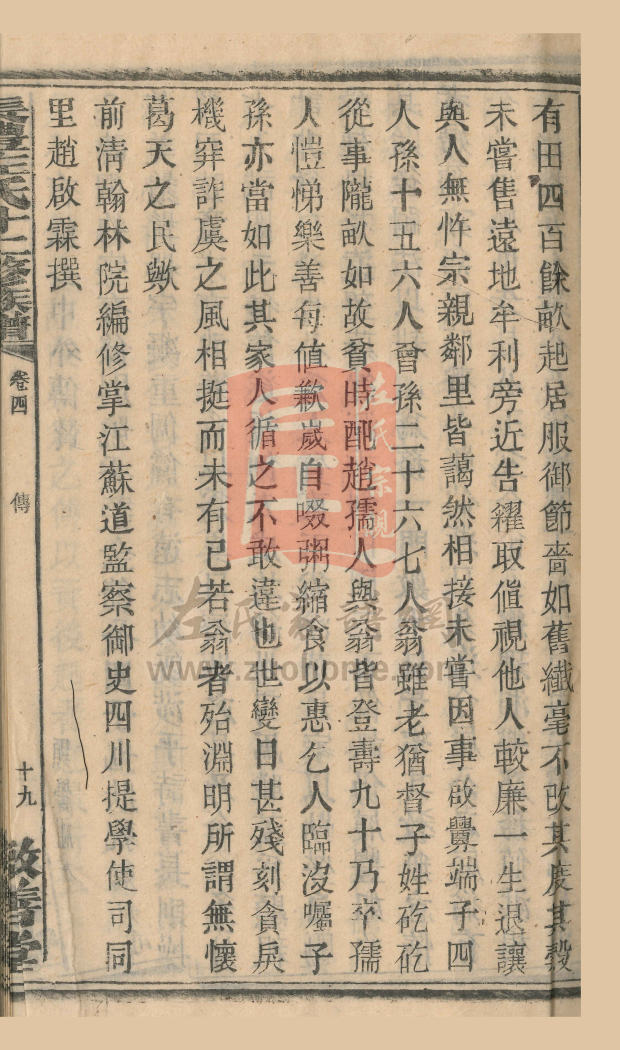 有田四百餘畝起居服御節嗇如舊纖毫不改其度其穀
未嘗售遠地牟利旁近告糴取值視他人較廉一生退讓
與人無忤宗親鄰里皆藹然相接未嘗因事啟釁端子四
人孫十五六人曾孫二十六七人翁雖老猶督子姓矻矻
從事隴畝如故貧時配趙孺人與翁皆登壽九十乃卒孺
人愷悌樂善每值歉歲自啜粥縮食以惠乞人臨沒囑子
孫亦當如此其家人循之不敢違也世變日甚殘刻貪戾
機穽詐虞之風相挺而未有已若翁者殆淵明所謂無懷
葛天之民歟
前淸翰林院編修掌江蘇道監察御史四川提學使司同
里趙啟霖撰
長灃左氏十二修族譜
卷四
傳
十九
敬善堂
左氏宗親
左氏家譜網